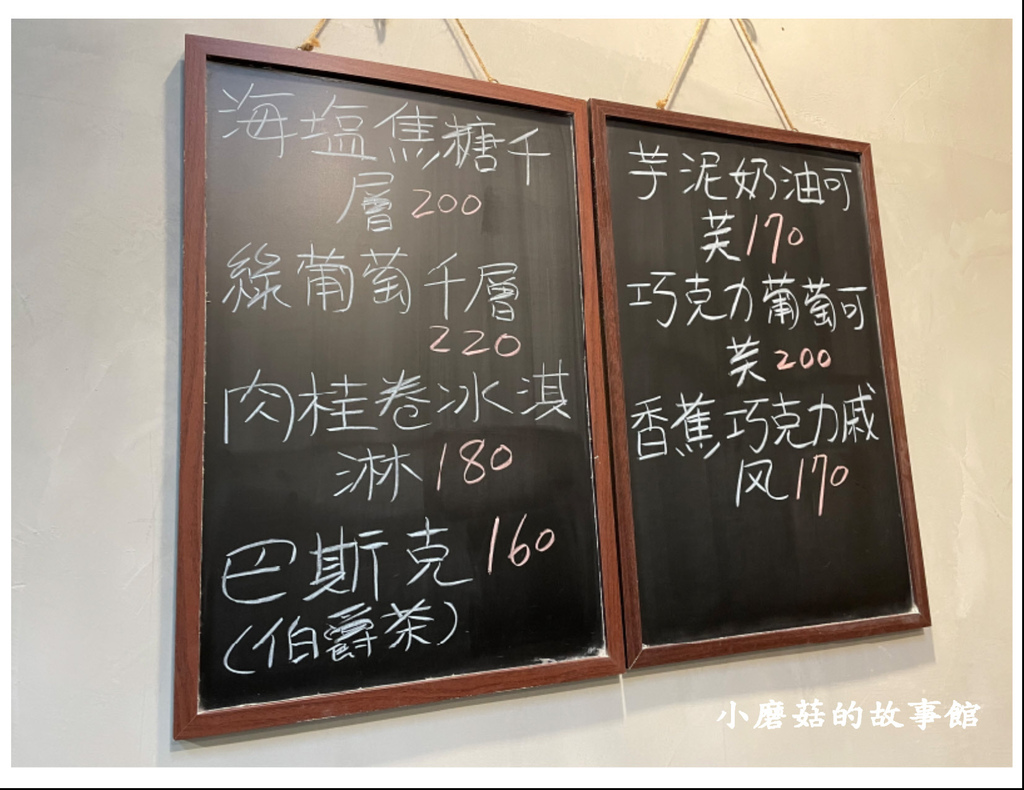 海塩焦糖千
層200
綠葡萄千層
220
肉桂卷冰淇
淋180
巴斯克160
(伯爵茶)
芋泥奶油可
芙170
巧克力葡萄可
芙200
香蕉巧克力戚
风170
小磨菇的故事館